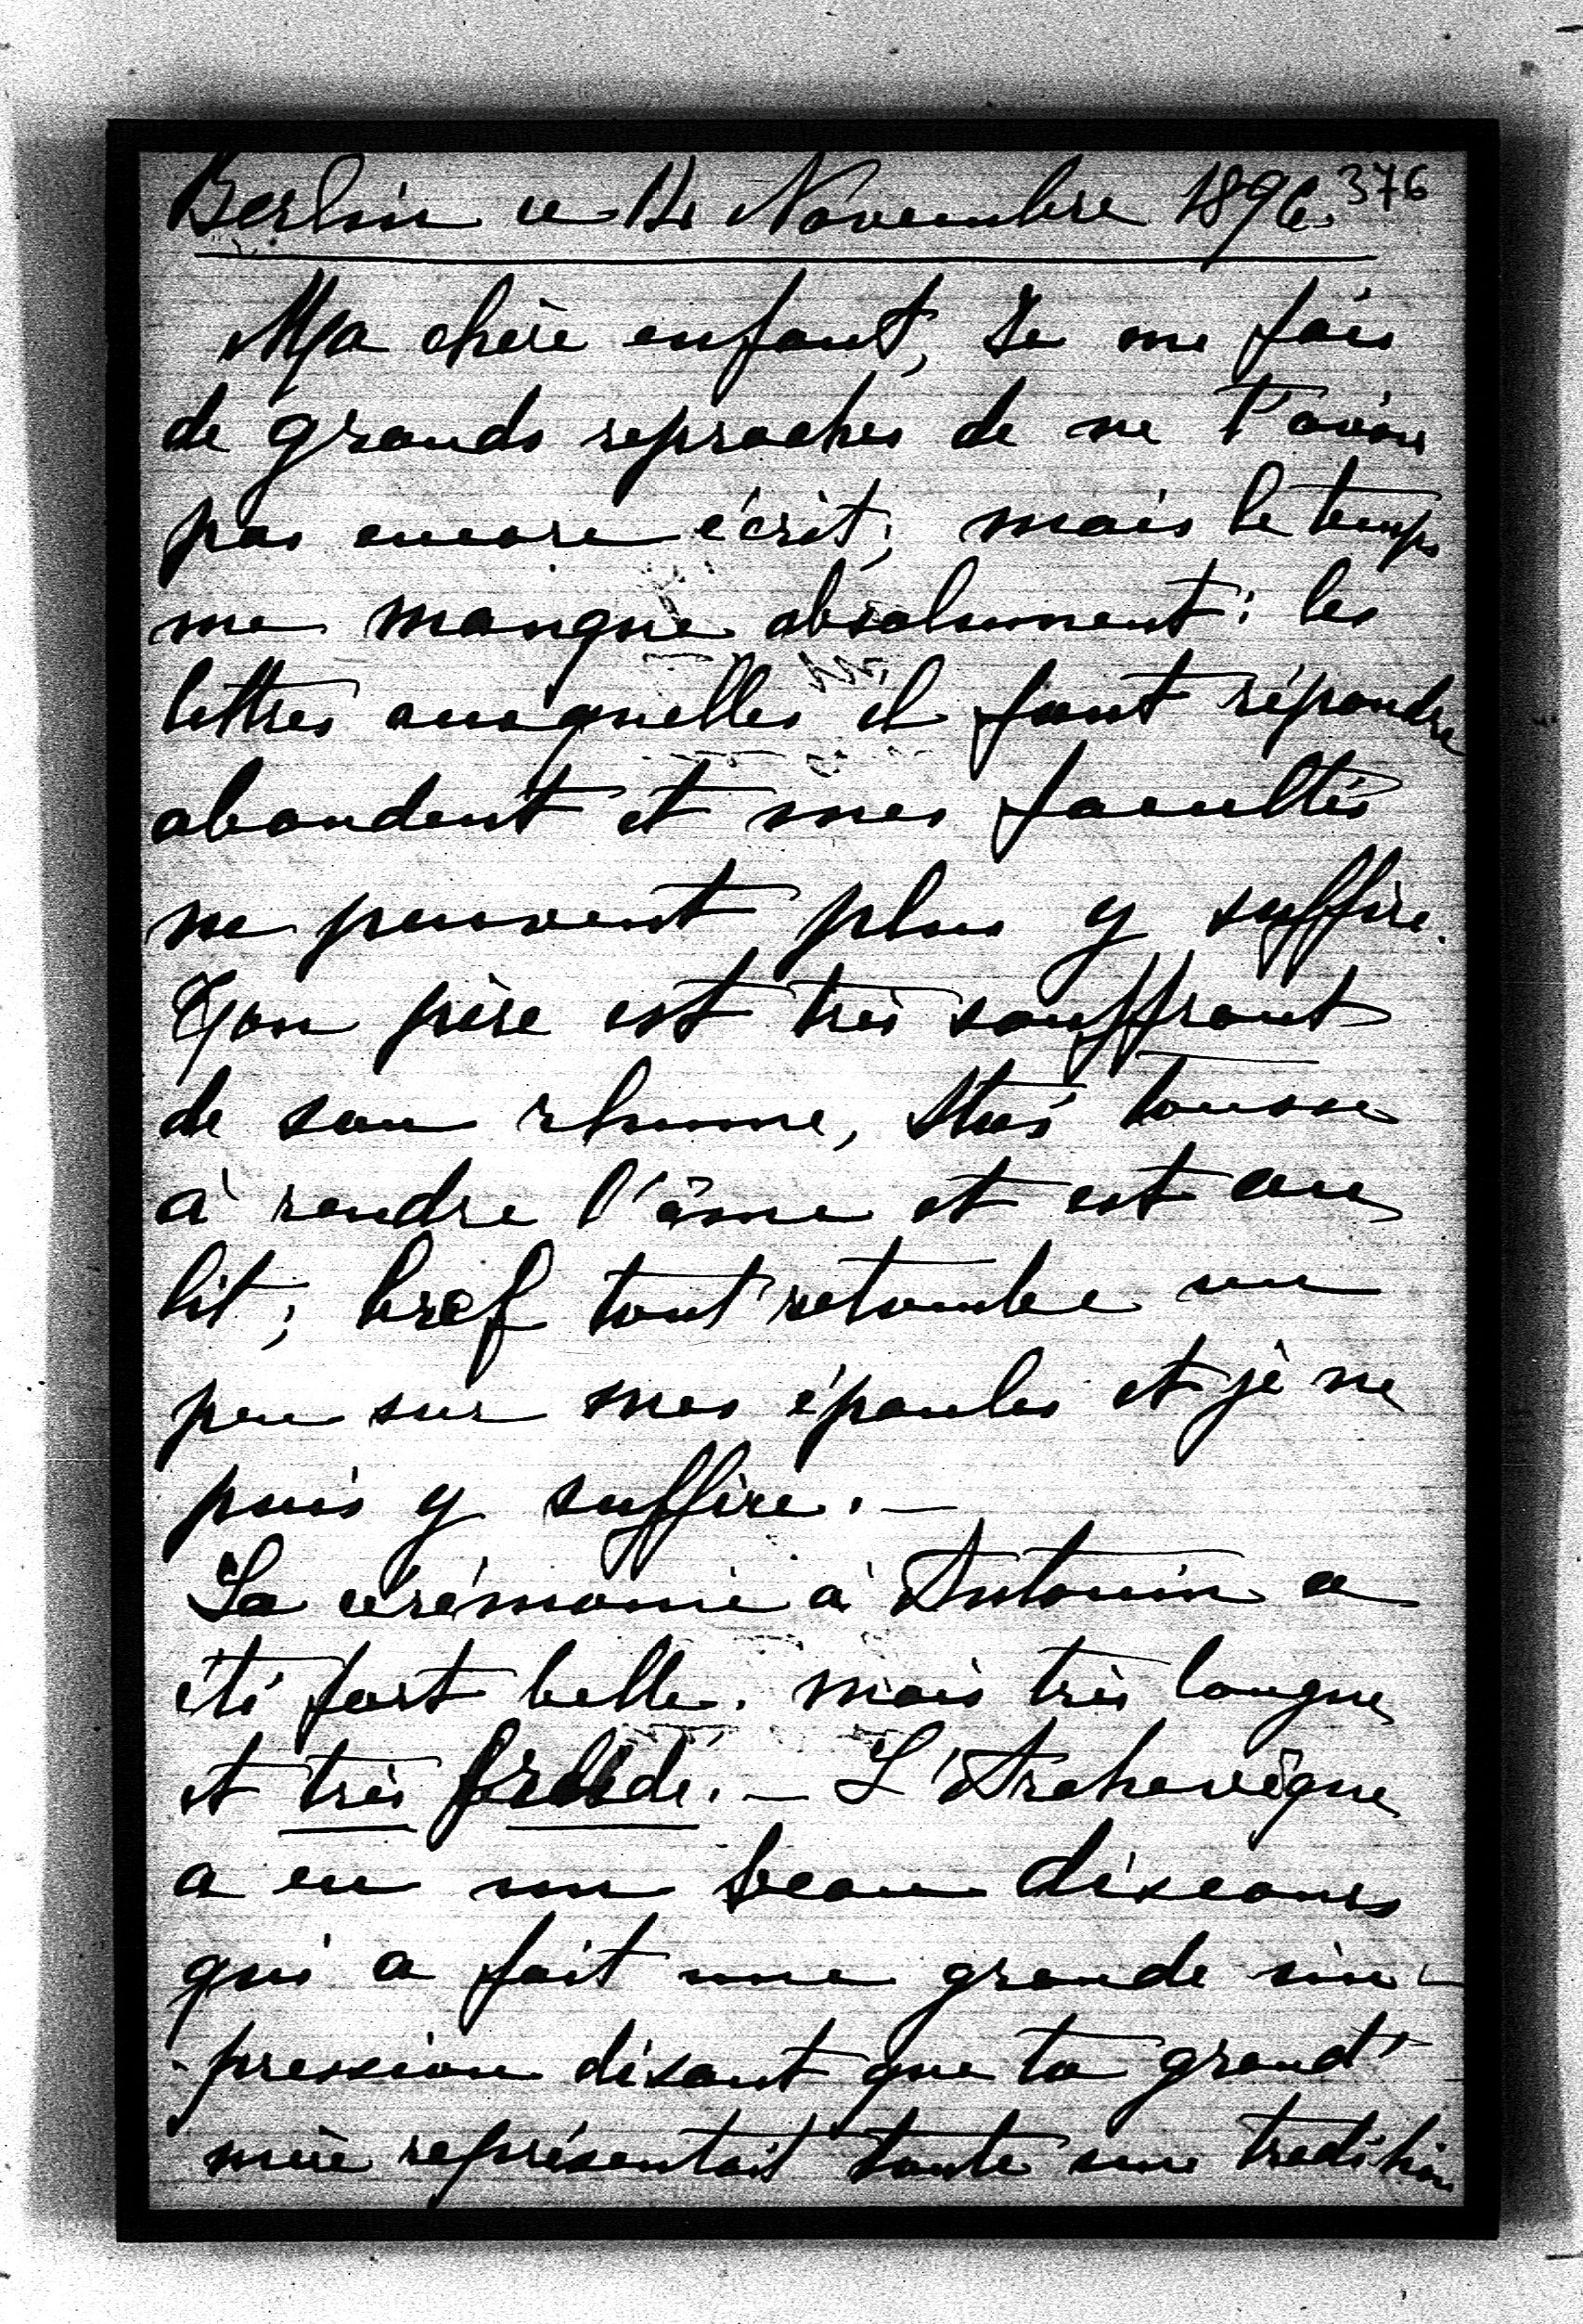 Berlin ce 12 Novembre 1896. 376
Ma chère enfant, Je me fais
de grands reproches de ne t'avoir
pas encore écrit; mais le temps
me manque absolument: les
lettres auxquelles il faut répondre
abondent et mes facultés
ne peuvent plus y suffire.
Ton père est très souffrant
de son rhume, tousse
à rendre l'âme et est au
lit; bref tout retombe un
peu sur mes épaules et je ne
puis y suffire. —
La cérémonie à Antonin a
été fort belle. mais très longue
et très froide. — L'Archevêque
a eu un beau discours
qui a fait une grande im-
-pression disant que ta grand'
mère représentait toute une tradition